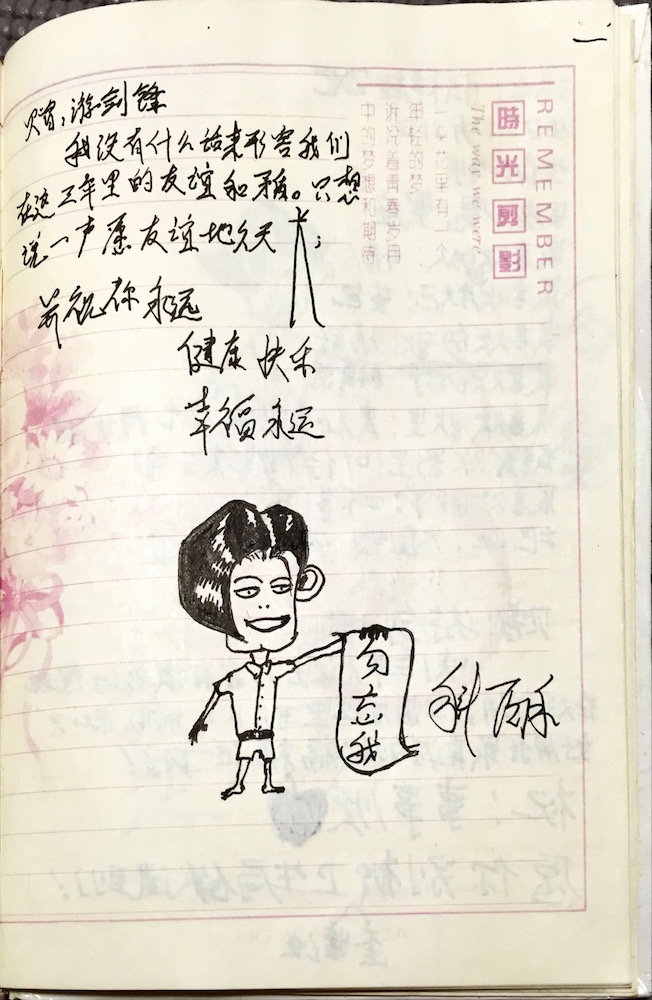 一
REMEMBER
時光剪影
The way we were
一朵花里有一个
年轻的梦
诉说着青春岁月
中的梦想和期待
赠:游剑锋
我没有什么话来形容我们
在这三年里的友谊和矛盾。只想
说一声愿友谊地久天长;
并祝你永远
健康快乐
幸福永远
勿忘我